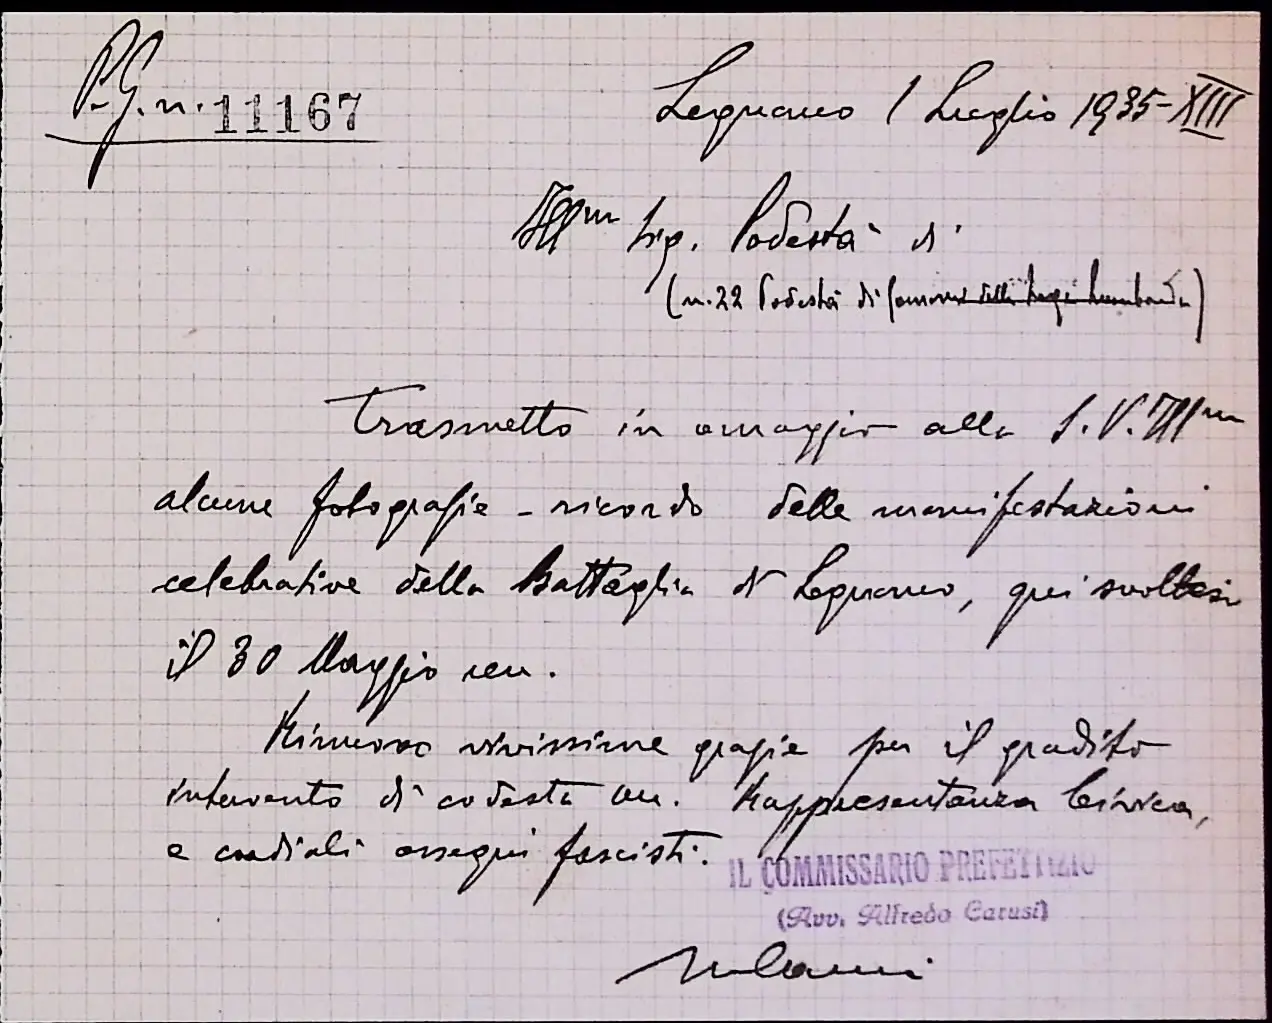 P.G.n. 11167
Legnano 1 Luglio 1935-XIII
Illmo Sig. Podestà di
(n. 22 Podestà di Comuni della Lega Lombarda)
Trasmetto in omaggio alla S.V. Illma
alcune fotografie - ricordo delle manifestazioni
celebrative della Battaglia di Legnano, qui svoltesi
il 30 Maggio
Rinnovo vivissime grazie per il gradito
intervento di codesta On. Rappresentanza Civica,
e cordiali ossequi fascisti.
IL COMMISSARIO PREFETTIZIO
(Avv. Alfredo Carusi)